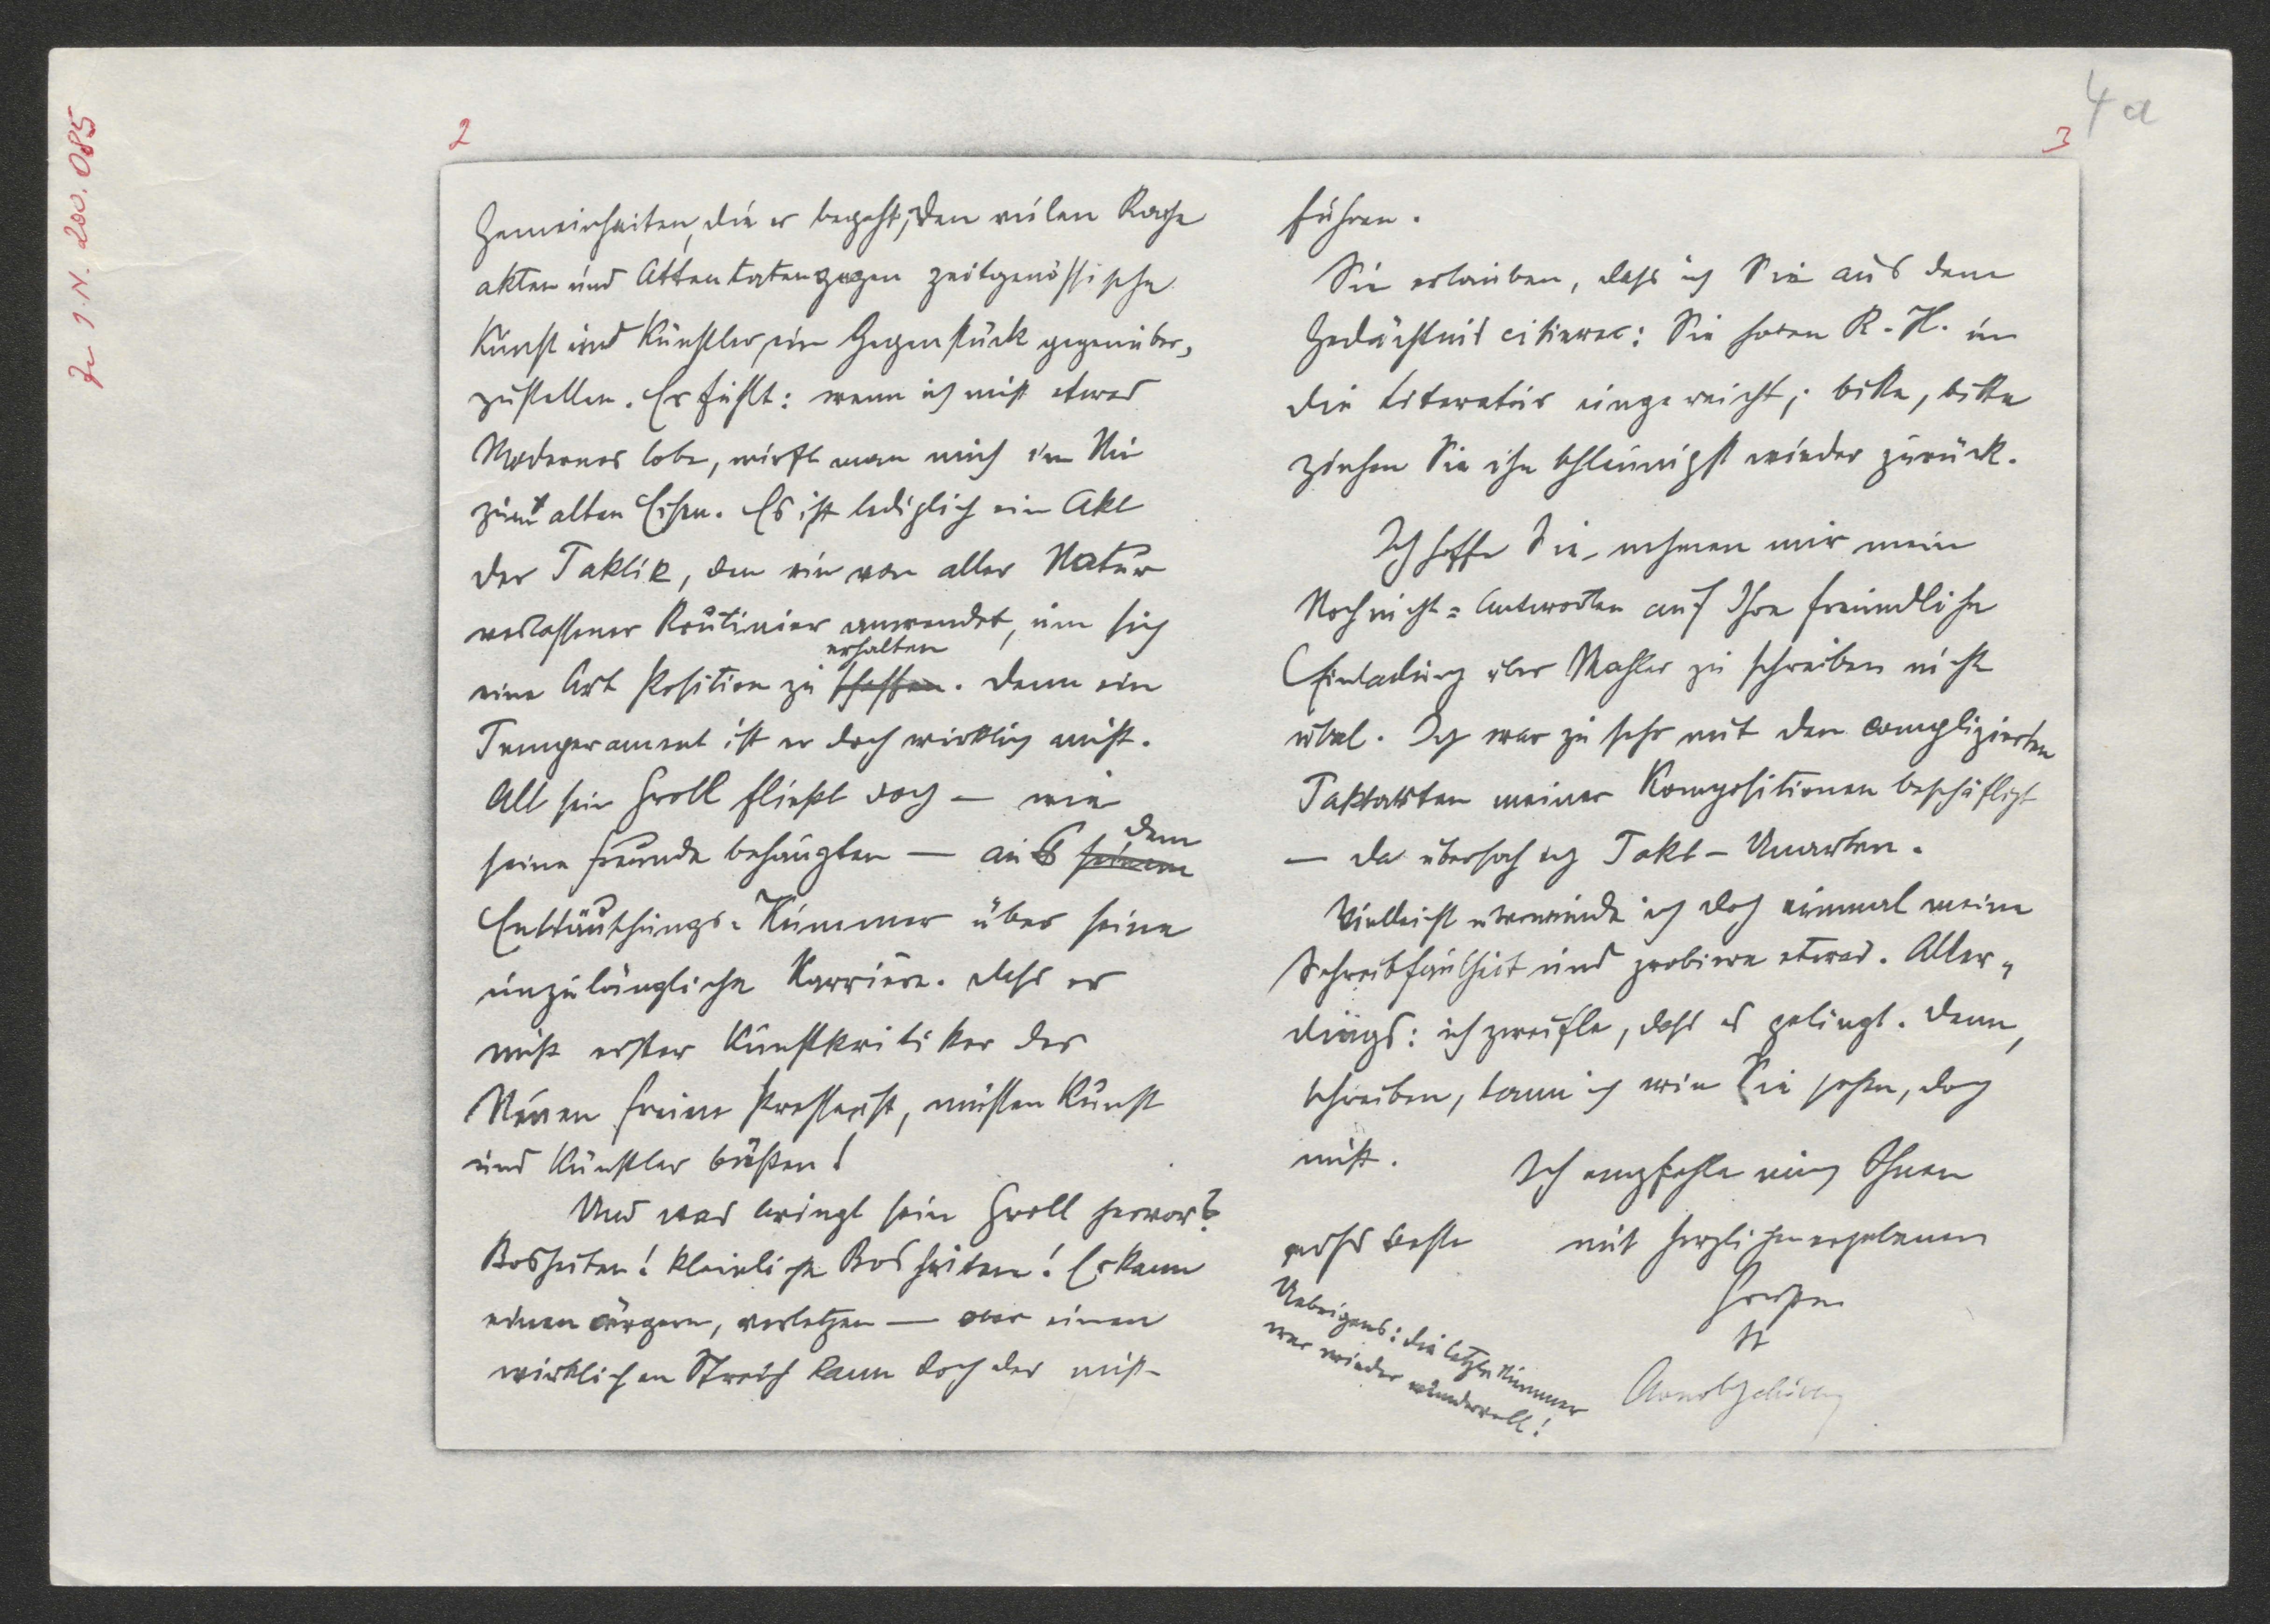 Zu I.N. 200.085
4a
2
Gemeinheiten, die er begeht; den vielen Rache
akten und Attentaten gegen zeitgenössische
Kunst und Künstler, ein Gegenstück gegenüber-
zustellen. Er fühlt: wenn ich nicht etwas
Modernes lobe, wirft man mich im Nu
zum alten Eisen. Es ist lediglich ein Akt
der Taktik, den ein von aller Natur
verlassener Routinier anwendet, um sich
eine Art Position zu schaffen erhalten. Denn ein
Temperament ist er doch wirklich nicht.
All sein Groll fließt doch — wie
seine Freunde behaupten — aus seinem dem
Enttäuschungs-Kummer über seine
unzulängliche Karrière. Dass er
nicht erster Kunstkritiker der
Neuen freien Presse ist, müssen Kunst
und Künstler büßen!
Und was bringt sein Groll hervor?
Bosheiten! Kleinliche Bosheiten! Er kann
einen ärgern, verletzen — aber einen
wirklichen Streich kann doch der nicht
3
führen.
Sie erlauben, dass ich Sie aus dem
Gedächtnis citiere: Sie haben R. H. in
die Literatur eingereicht; bitte, bitte
ziehen Sie ihn schleunigst wieder zurück.
Ich hoffe Sie nehmen mir mein
Nochnicht-Antworten auf Ihre freundliche
Einladung über Mahler zu schreiben nicht
übel. Ich war zu sehr mit den complizierten
Taktarten meiner Kompositionen beschäftigt
— da übersah ich Takt-Unarten.
Vielleicht überwinde ich doch einmal meine
Schreibfaulheit und probiere etwas. Aller-
dings: ich zweifle, dass es gelingt. Denn,
schreiben, kann ich wie Sie sehen, doch
nicht. Ich empfehle mich Ihnen
aufs beste mit herzlichen ergebenen
Grüßen
Ihr
Arnold Schönberg
Uebrigens: die letzte Nummer
war wieder wundervoll!